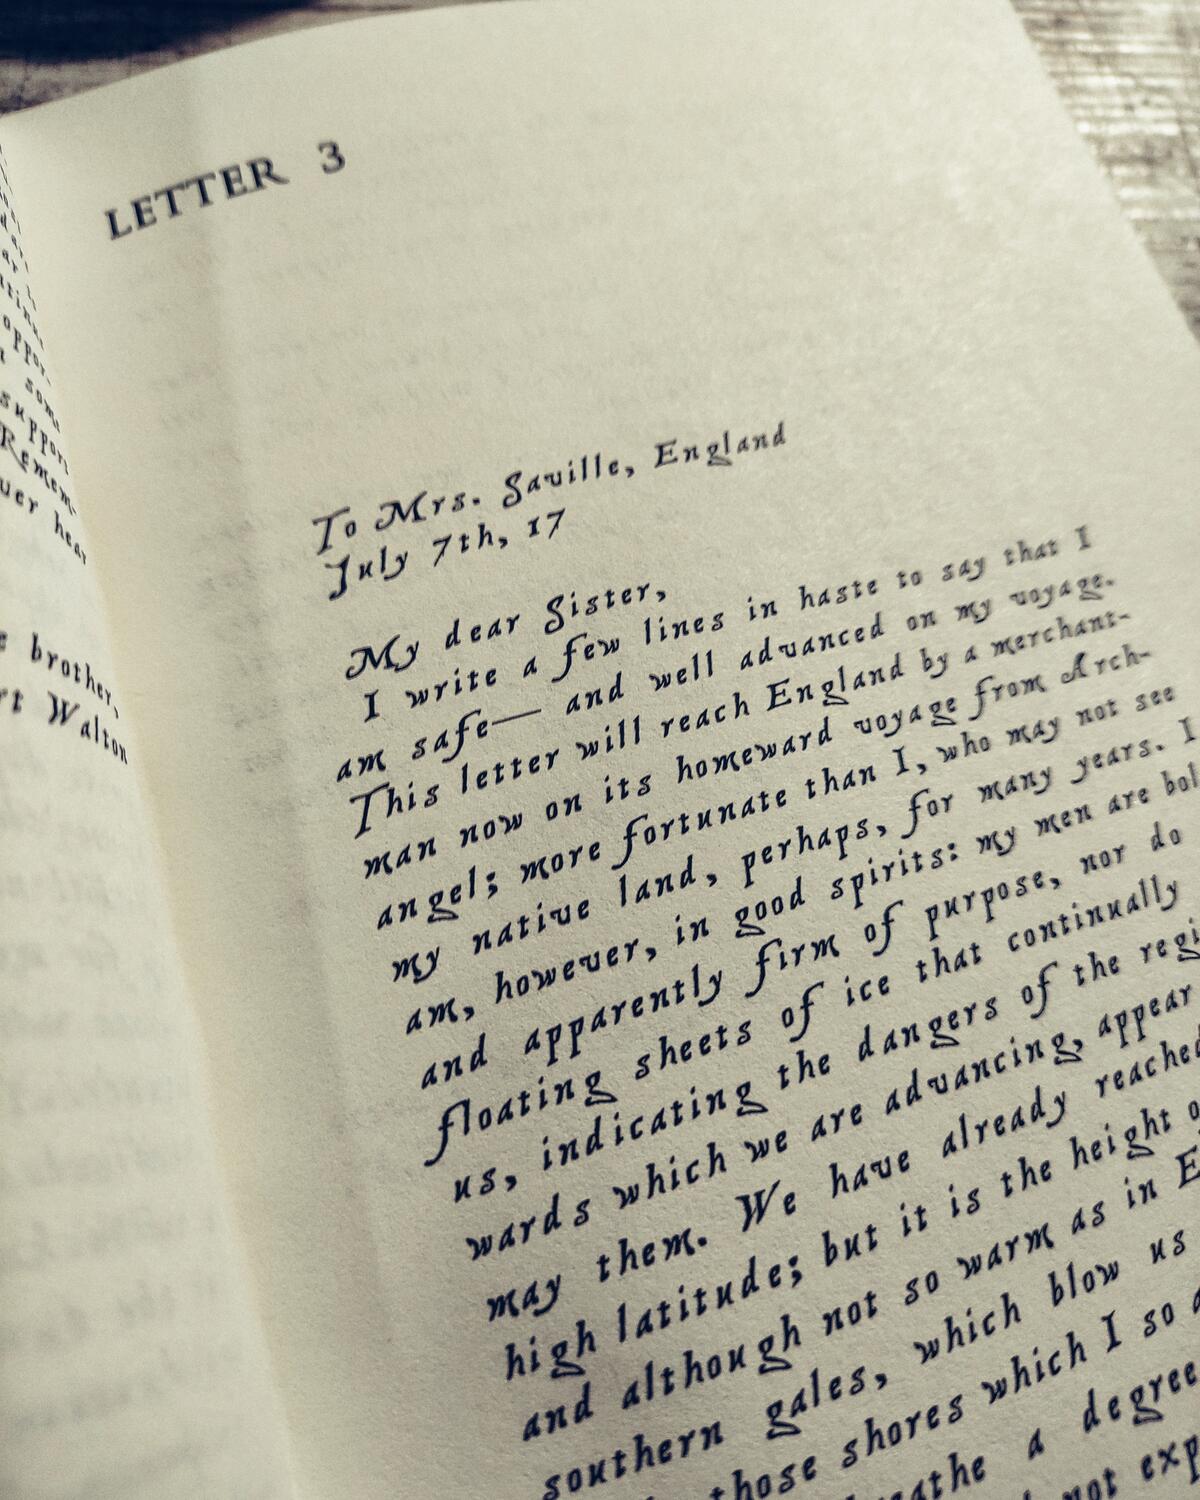 some
support
Remem-
brother,
Walton
LETTER 3
To Mrs. Saville, England
July 7th, 17
My dear Sister,
I write a few lines in haste to say that I
am safe— and well advanced on my voyage.
This letter will reach England by a merchant-
man now on its homeward voyage from Arch-
angel; more fortunate than I, who may not see
my native land, perhaps, for many years. I
am, however, in good spirits: my men are bol
and apparently firm of purpose, nor do
floating sheets of ice that continually
us, indicating the dangers of the regi
wards which we are advancing, appear
may them. We have already reached
high latitude; but it is the height o
and although not so warm as in E
southern gales, which blow us
those shores which I so a
a degree
not exp